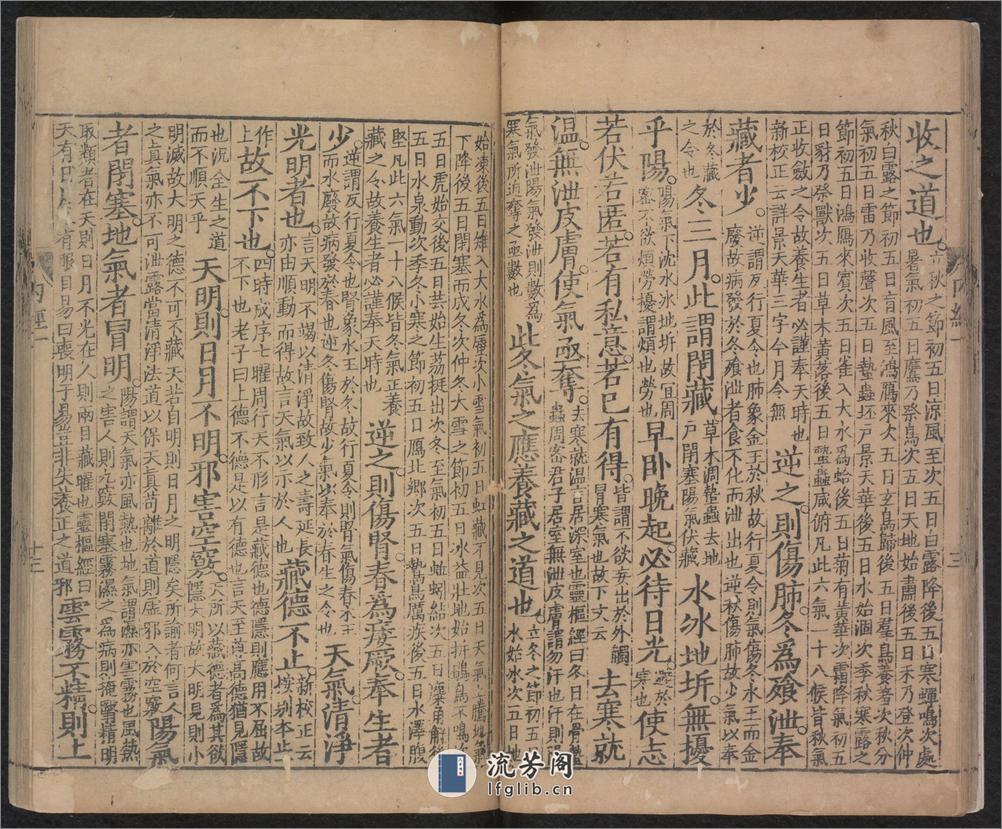 收之道也。立秋之節初五日涼風至次五日白露降後五日寒蟬鳴次處
暑氣初五日鷹乃祭鳥次五日天地始肅後五日禾乃登次仲
秋白露之節初五日盲風至鴻鴈來次五日玄鳥歸後五日羣鳥養羞次秋分
氣初五日雷乃收聲次五日蟄蟲坯戶景天華後五日水始涸次季秋寒露之
節初五日鴻鴈來賓次五日雀入大水為蛤後五日菊有黃華次霜降氣初五
日豺乃祭獸次五日草木黃落後五日蟄蟲咸俯凡此六氣一十八候皆秋氣
正收斂之令故養生者必謹奉天時也
新校正云詳景天華三字今月令無 逆之則傷肺冬為飧泄奉
藏者少。逆謂反行夏令也肺象金王於秋故行夏令則氣傷冬水王而金
廢故病發於冬飧泄者食不化而泄出也逆秋傷肺故少氣以奉
於冬藏之令也 冬三月此謂閉藏 草木凋蟄蟲去地戶閉塞陽氣伏藏 水冰地坼無擾
乎陽。陽氣下沈水冰地坼故宜周密不欲煩勞擾謂煩也勞也 早卧晚起必待日光 避於寒也 使志
若伏若匿若有私意若已有得。皆謂不欲妄出於外觸冒寒氣也故下文云 去寒就
温無泄皮膚使氣亟奪。去寒就温言居深室也靈樞經曰冬日在骨蟄
蟲周密君子居室無泄皮膚謂勿汗也汗則陽
氣發泄陽氣發泄則數為寒氣所迫奪之亟數也 此冬氣之應養藏之道也。立冬之節初五日
水始冰次五日地
始凍後五日雉入大水為蜃次小雪氣初五日虹藏不見次五日天氣上騰地氣
下降後五日閉塞而成冬次仲冬大雪之節初五日冰益壯地始坼鶡鳥不鳴次
五日虎始交後五日芸始生荔挺出次冬至氣初五日蚯蚓結次五日麋角解後
五日水泉動次季冬小寒之節初五日鴈北鄉次五日鷙鳥厲疾後五日水澤腹
堅凡此六氣一十八候皆冬氣正養
藏之令故養生者必謹奉天時也 逆之則傷腎春為痿厥奉生者
少。逆謂反行夏令也腎象水王於冬故行夏令則腎氣傷春木王
而水廢故病發於春也逆冬傷腎故少氣以奉於春生之令也 天氣清淨
光明者也。言天明不竭以清淨故致人之壽延長
亦由順動而得故言天氣以示於人也 藏德不止 新校正云按别本止
作上 故不下也。四時成序七曜周行天不形言是藏德也德隱則應用不屈故
不下也老子曰上德不德是以有德也言天至尊高德猶見隱
也況全生之道而不順天乎 天明則日月不明邪害空竅。
明滅故大明之德不可不藏天若自明則日月之明隱矣所諭者何言人
之真氣亦不可泄露當清淨法道以保天真苟離於道則虛邪入於空竅 陽氣
者閉塞地氣者冒明。陽謂天氣亦風熱也地氣謂濕亦雲霧也風熱
之害人則九竅閉塞霧濕之為病則掩翳精明
取類者在天則日月不光在人則兩目藏曜也靈樞經曰
天有日月人有眼目易曰喪明于易豈非失養正之道邪 雲霧不精則上
內經一
十三
流芳阁
lfglib.cn